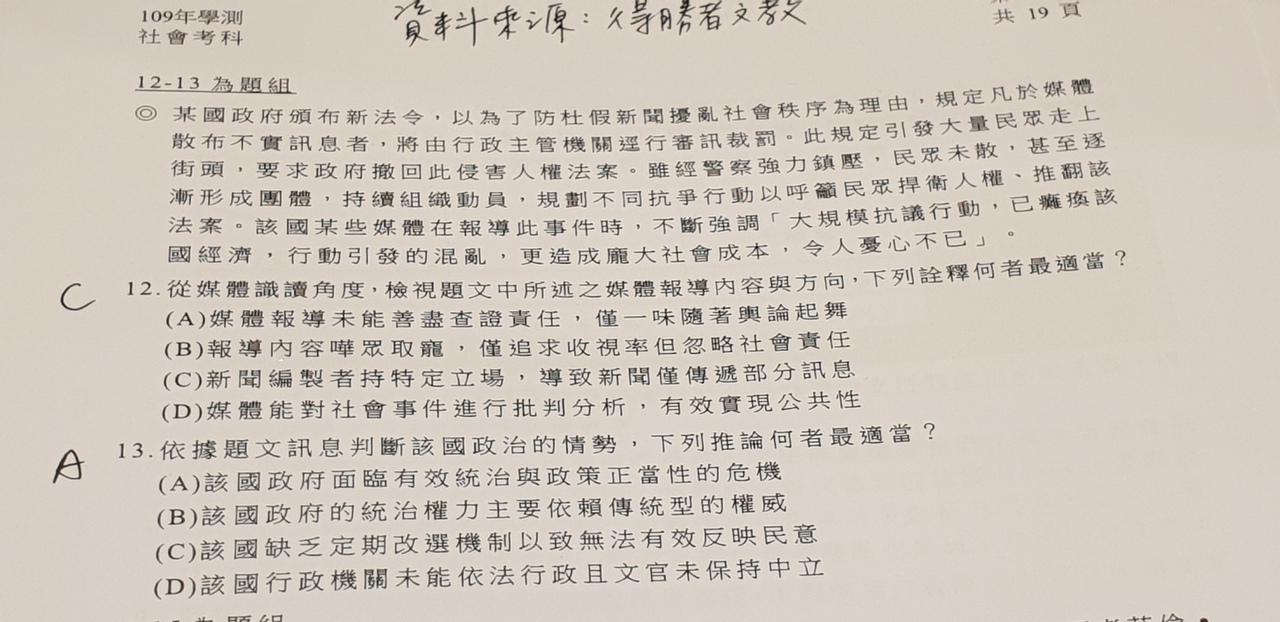 109年學測
社會考科
資料來源：得勝者文教
共 19 頁
12-13 為題組
◎ 某國政府頒布新法令，以為了防杜假新聞擾亂社會秩序為理由，規定凡於媒體
散布不實訊息者，將由行政主管機關逕行審訊裁罰。此規定引發大量民眾走上
街頭，要求政府撤回此侵害人權法案。雖經警察強力鎮壓，民眾未散，甚至逐
漸形成團體，持續組織動員，規劃不同抗爭行動以呼籲民眾捍衛人權、推翻該
法案。該國某些媒體在報導此事件時，不斷強調「大規模抗議行動，已癱瘓該
國經濟，行動引發的混亂，更造成龐大社會成本，令人憂心不已」。
C 12.從媒體識讀角度，檢視題文中所述之媒體報導內容與方向，下列詮釋何者最適當？
(A)媒體報導未能善盡查證責任，僅一味隨著輿論起舞
(B)報導內容嘩眾取寵，僅追求收視率但忽略社會責任
(C)新聞編製者持特定立場，導致新聞僅傳遞部分訊息
(D)媒體能對社會事件進行批判分析，有效實現公共性
A 13.依據題文訊息判斷該國政治的情勢，下列推論何者最適當？
(A)該國政府面臨有效統治與政策正當性的危機
(B)該國政府的統治權力主要依賴傳統型的權威
(C)該國缺乏定期改選機制以致無法有效反映民意
(D)該國行政機關未能依法行政且文官未保持中立
為題組